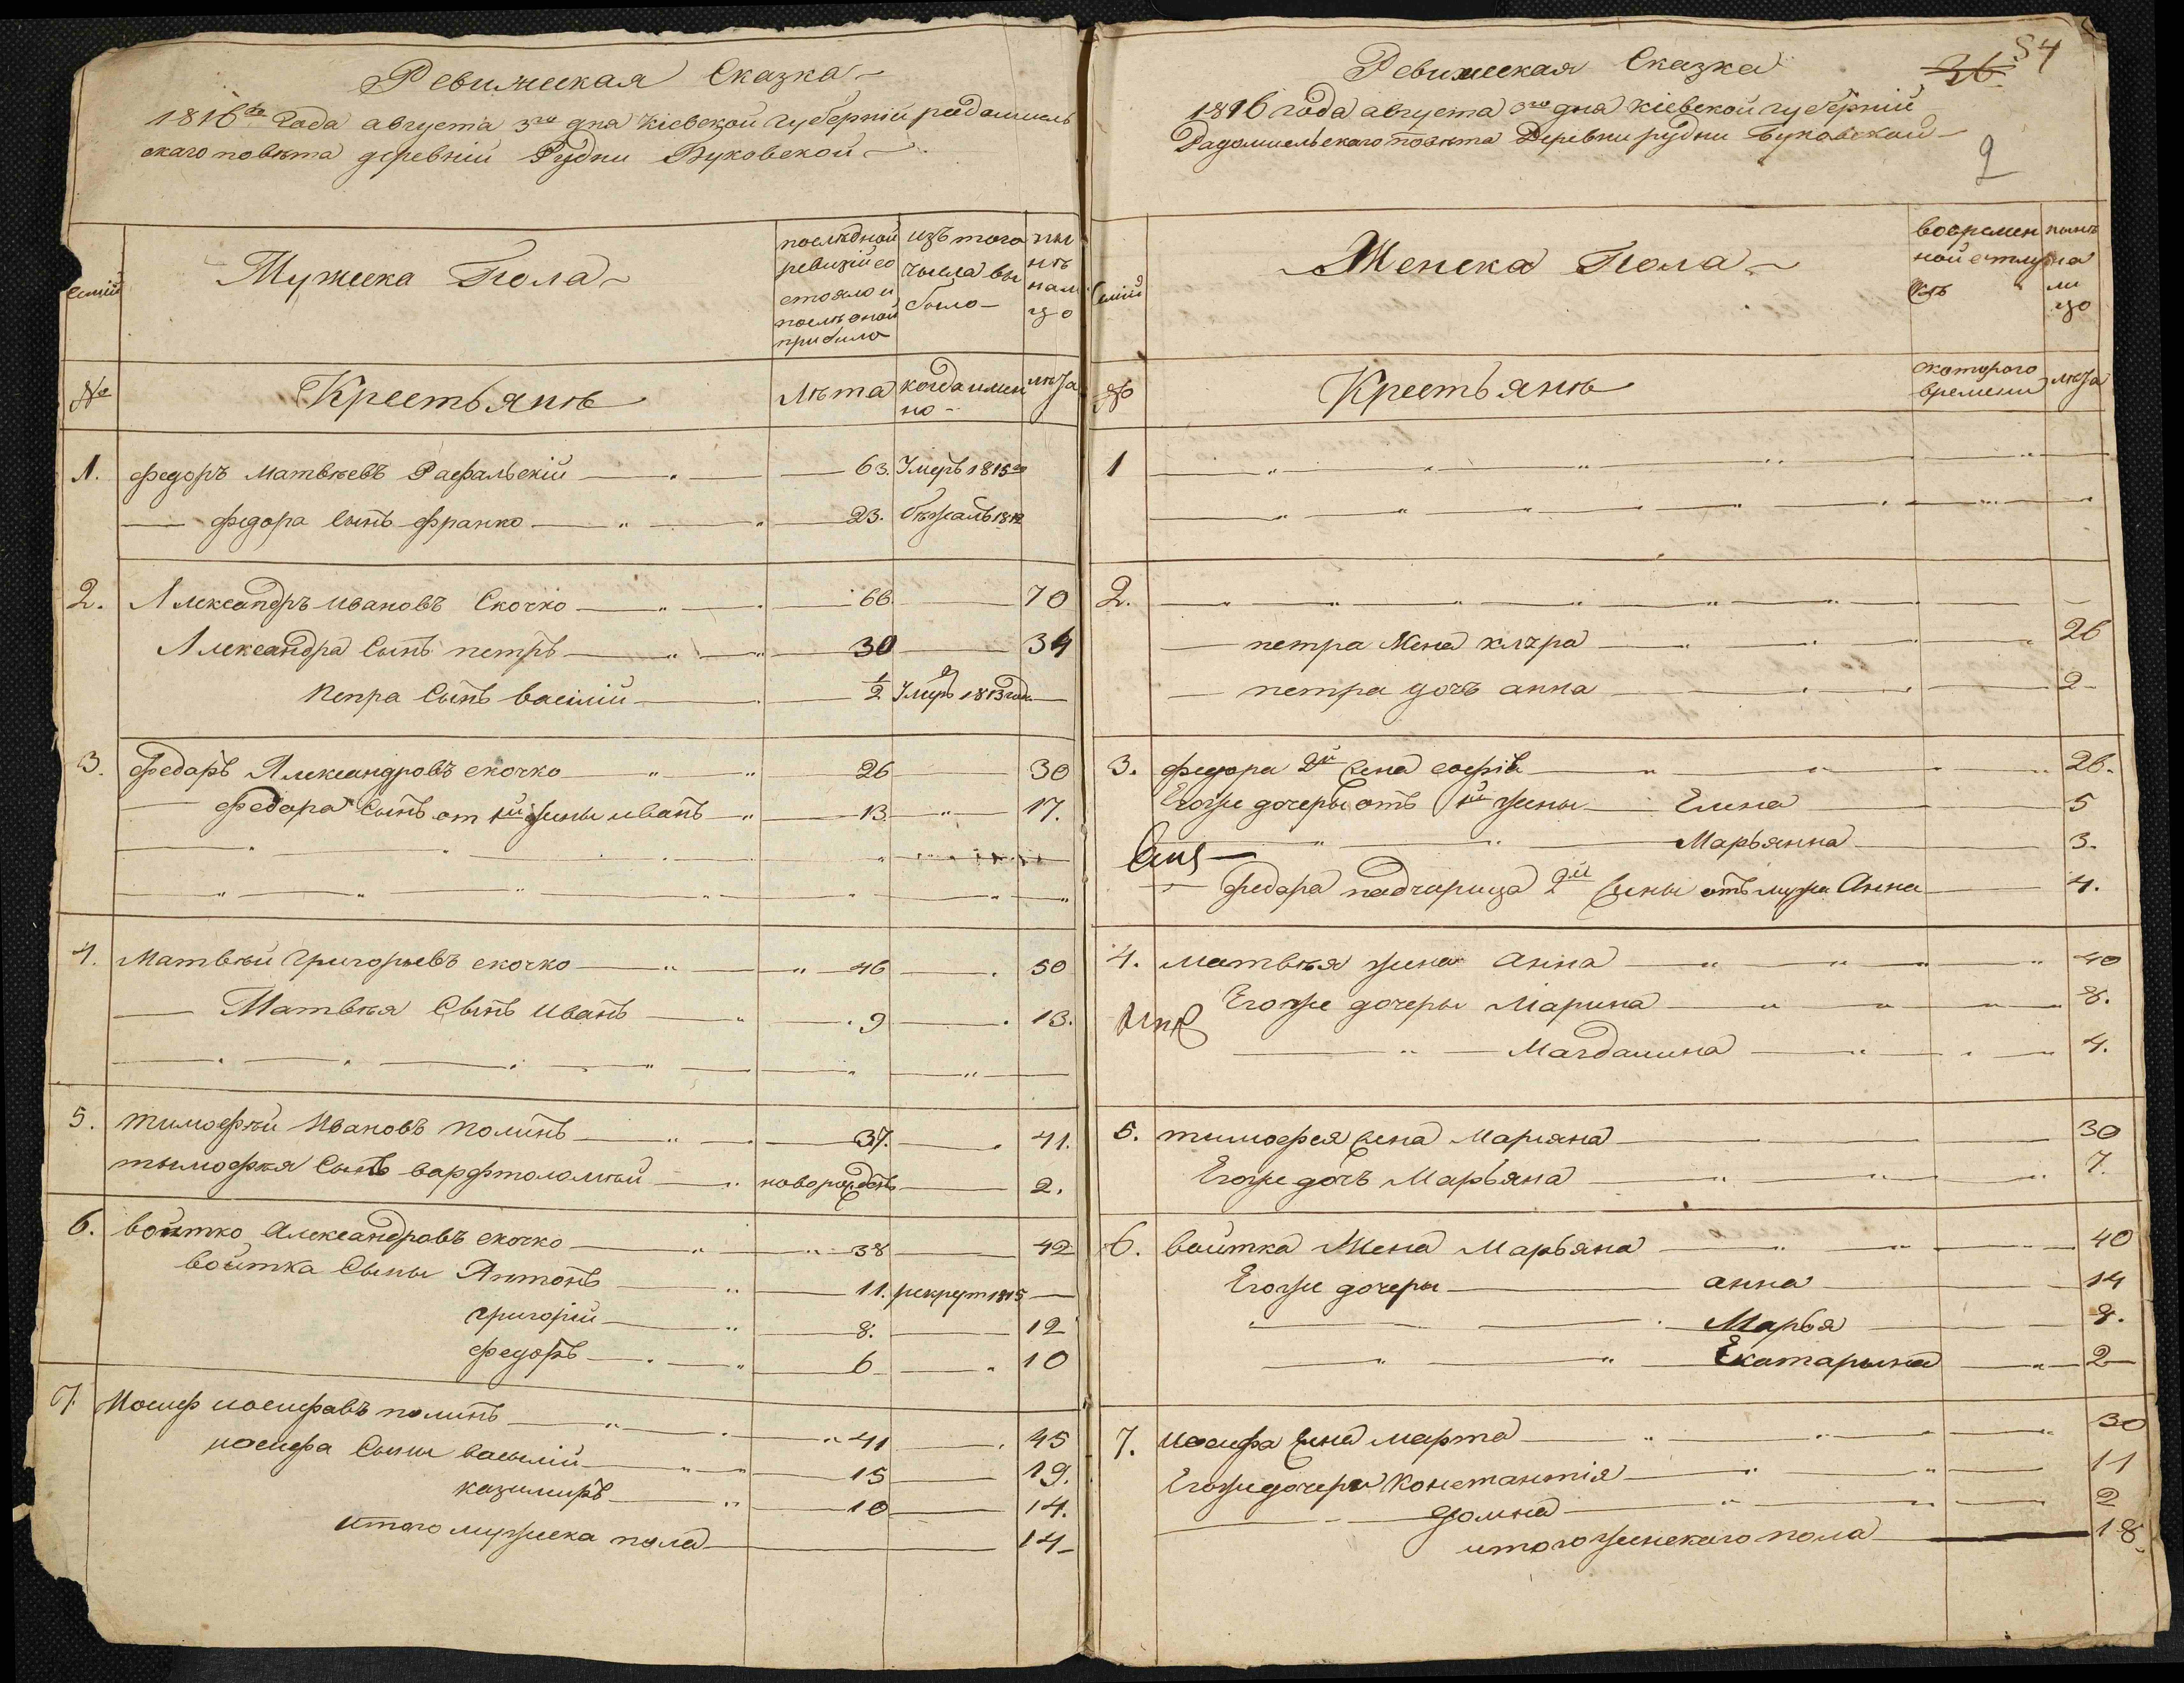 Ревижеская Сказка
1816го Года августа 3го дня Кіевской губерніи радомиль
скаго повѣта деревніи Рудни Буковской
семій
Мужеска Пола
последной ревизіи состояло и послѣ оной прибыло
изъ того числа выбыло
нынѣ налицо
№
Крестьянѣ
лѣта
когда именно
лѣта
1. Федоръ Матвѣевъ Рафальскій 63. Умеръ 1815го
Федора Сынъ Франко 23. бѣжалъ 1812
2. Александръ Ивановъ Скочко 66 70
Александра Сынъ петръ 30 34
Петра Сынъ василій ½ Умеръ 1813 года
3. Федоръ Александровъ скочко 26 30
Федора Сынъ от 1й жены иванъ 13 17.
4. Матвѣй Григорьевъ скочко 46 50
Матвѣя Сынъ иванъ 9 13.
5. тимофѣй Ивановъ полинъ 37. 41.
тымофѣя Сынъ варфтоломѣй новорожденъ 2.
6. войтко Александровъ скочко 38 42
войтка Сыны Антонъ 11. рекрут 1815
григорій 8. 12
федоръ 6 10
7. Иосиф иосифовъ полинъ 41 45
иосифа Сыны василій 15 19.
казимиръ 10 14.
итого мужеска пола 14
Ревижеская Сказка
36 54
1816 года августа 3го дня кіевской губерніи
Радомисльскаго повѣта Деревни рудни Буковской
2
Семій
Женска Пола
во временной отлучкѣ
нынѣ на лицо
№
Крестьянѣ
с которого времени
лѣта
1
2.
петра Жена клара 26
петра дочъ анна 2
3. федора 2й жена софія 26.
Егоже дочеры отъ 1й жены Елена 5
Марьянна 3.
Федора падчирица 2й жены отъ мужа Анна 4.
4. матвѣя жена Анна 40
Егоже дочеры Марина 8.
Магдалина 4.
5. тимофея жена Марияна 30
Егоже дочъ Марьяна 7.
6. войтка Жена Марьяна 40
Егоже дочеры анна 14
Марья 8.
Екатарына 2
7. иосифа жена марта 30
Егоже дочеры Константія 11
домна 2
итого женскаго пола 18.